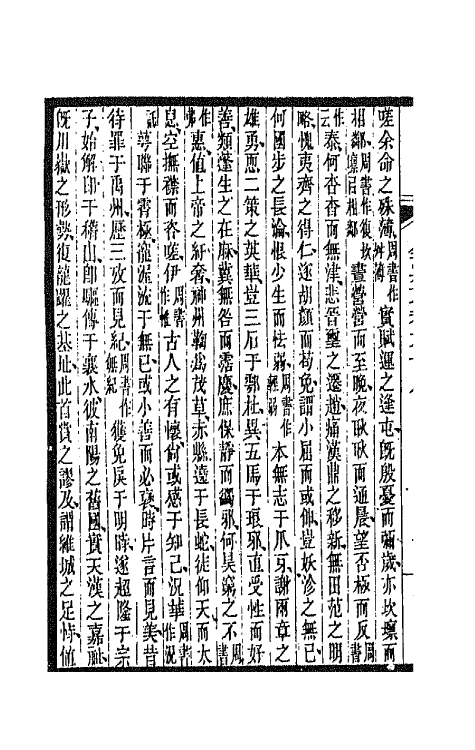 嗟余命之殊薄周書作舛薄實賦運之逢屯旣殷憂而彌歲亦坎壈而
相鄰周書作復坎壈㠯相鄰晝營營而至晚夜耿耿而通晨望否極而反周書作云
泰何杳杳而無津悲晉璽之遷趙痛漢鼎之移新無田范之明
略愧夷齊之得仁遂胡顏而苟免謂小屈而或伸豈妖沴之無已
何國步之長淪恨少生而怯弱周書作輕弱本無志于爪牙謝兩章之
雄勇恧二策之英華豈三石于鄠杜異五馬于琅邪直受性而好
善類蓬生之在麻冀無咎而霑慶庶保靜而蠲邪何昊穹之不周書作弗
惠值上帝之紆奢神州鞠爲茂草赤縣遶于長蛇徒仰天而太
息空撫襟而咨嗟伊周書作惟古人之有懷尚或感于知己況華周書作況託
萼聯于霄極寵渥流于無已或小善而必襃時片言而見美昔
待罪于禹州歷三攷而見紀周書作無紀獲免戾于明時遂超隆于宗
子始解印于稽山卽驅傳于襄水彼南陽之舊國實天漢之嘉祉
旣川嶽之形勢復龍躍之基址此首賞之謬及謂維城之足恃值